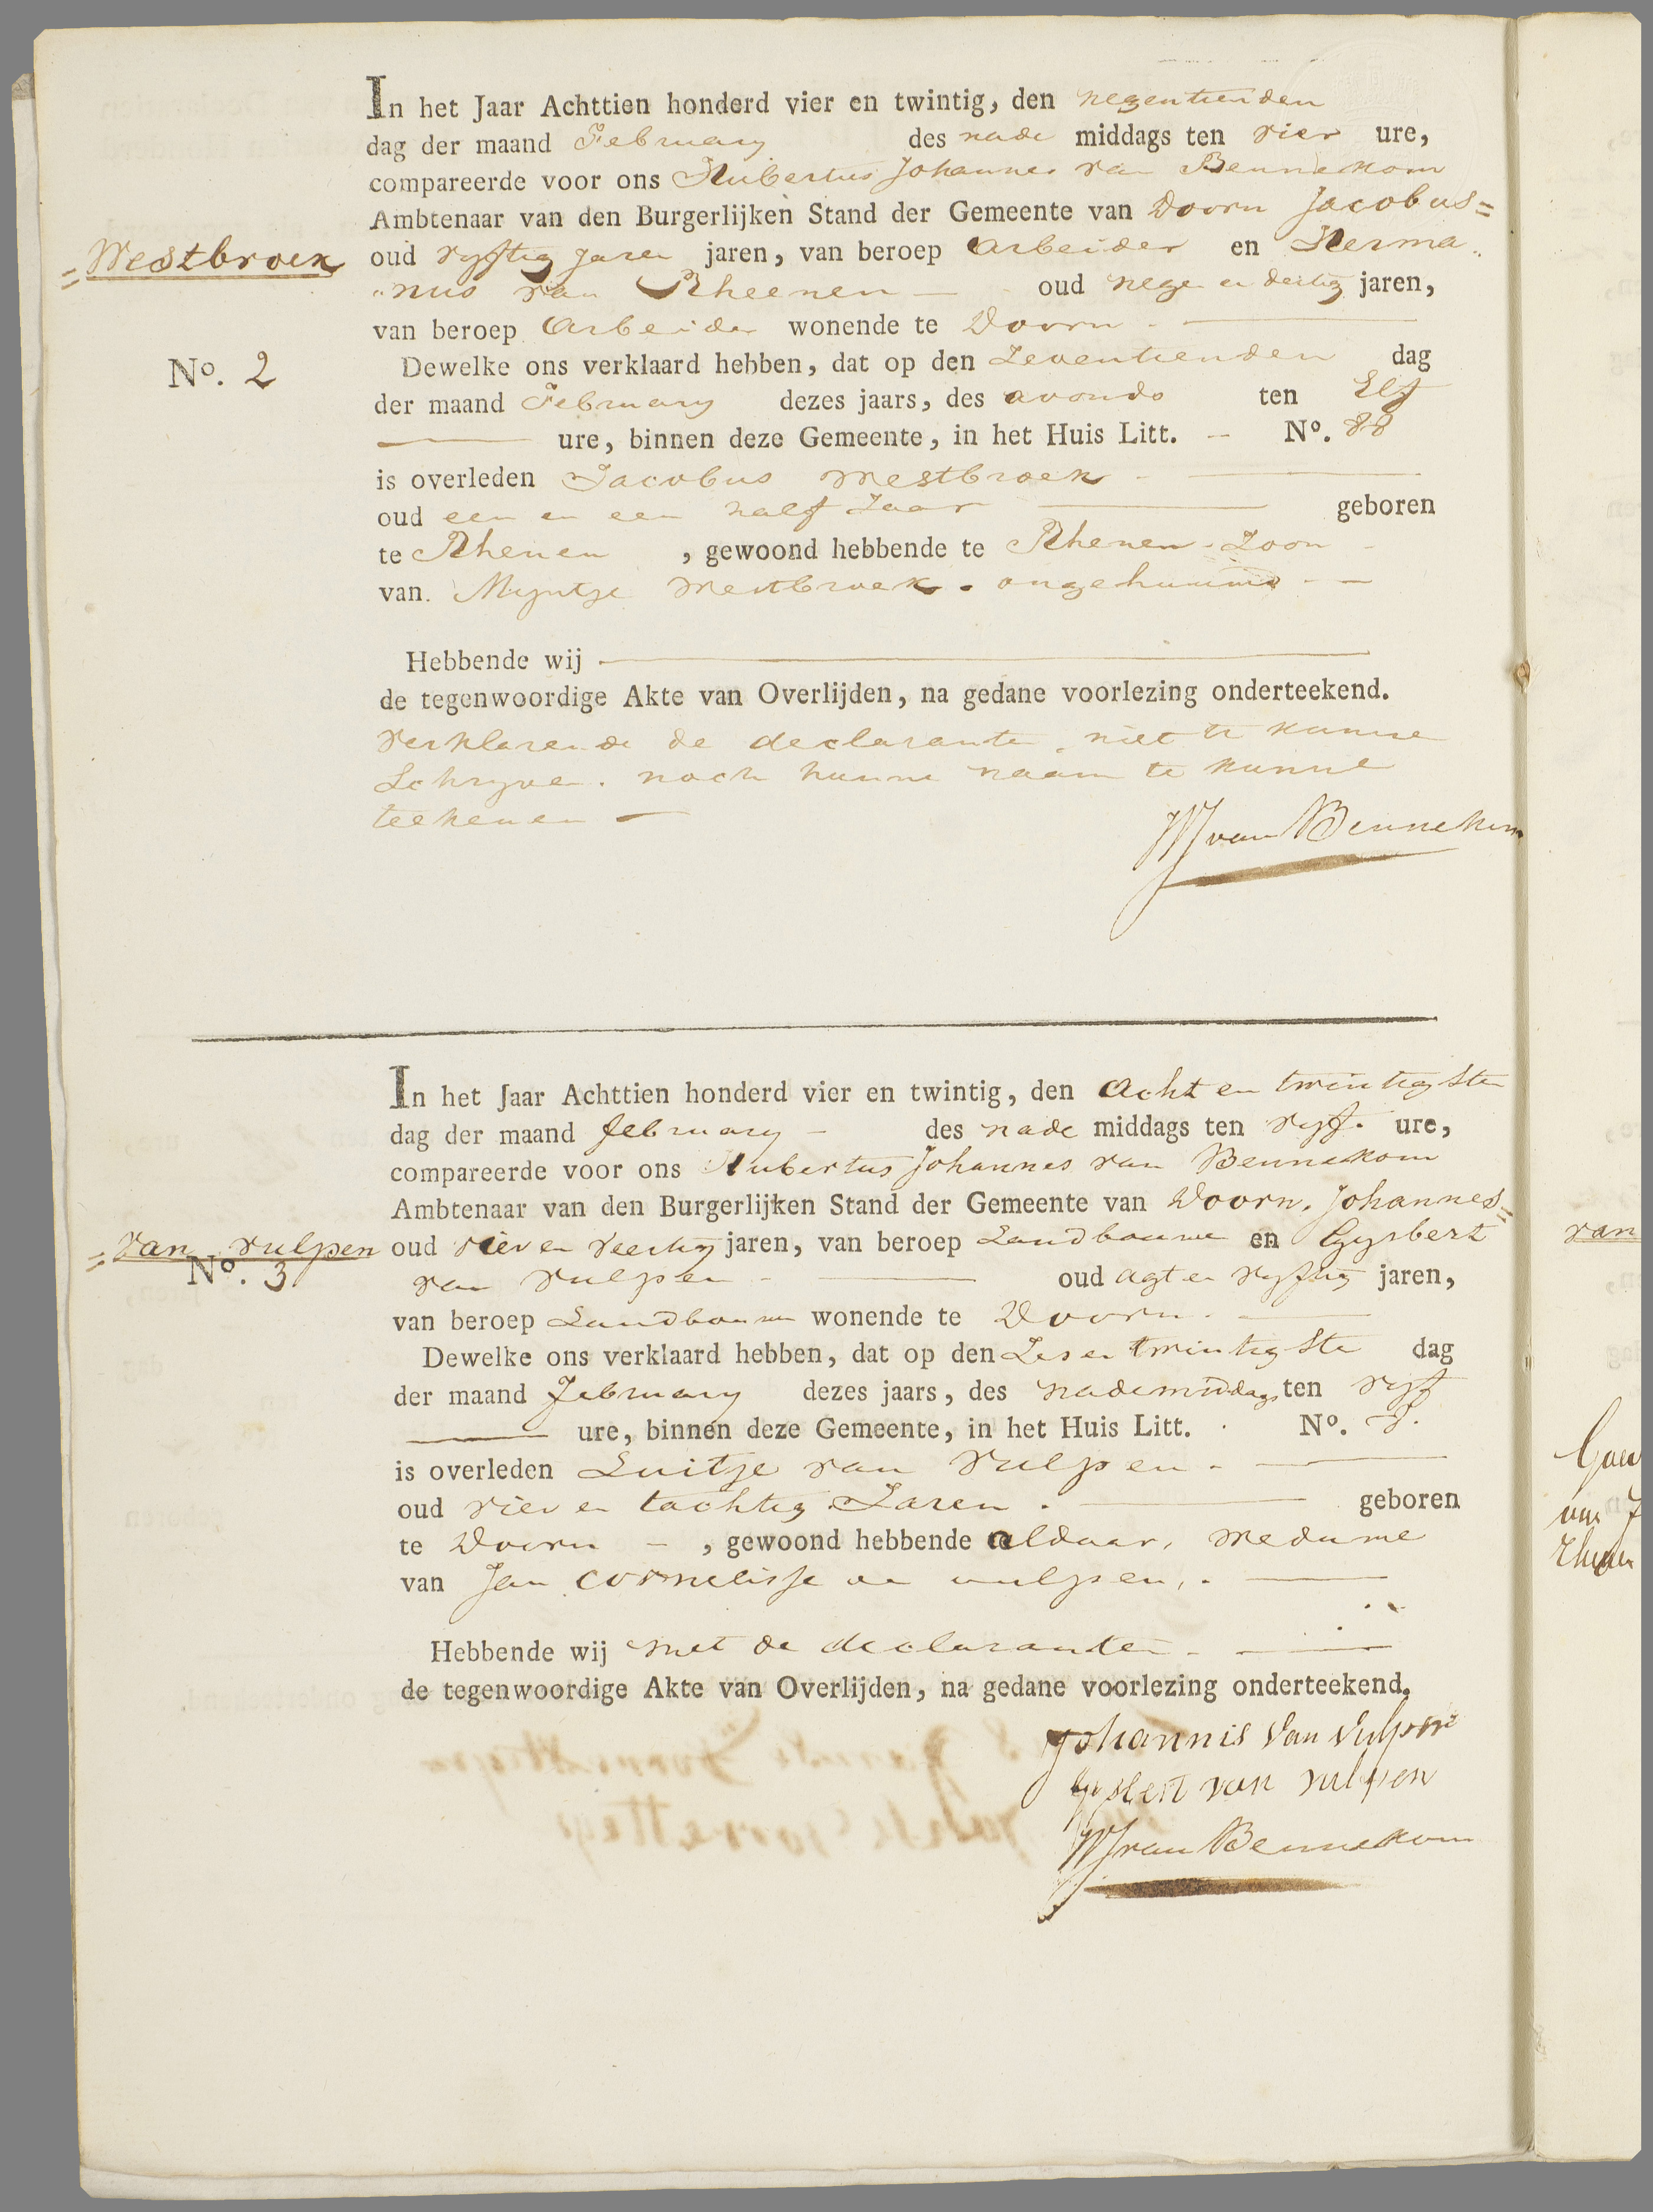 In het Jaar Achttien honderd vier en twintig, den negentienden
dag der maand February des nade middags ten vier ure,
compareerde voor ons Hubertus Johannes van Bennekom
Ambtenaar van den Burgerlijken Stand der Gemeente van Doorn Jacobus=
=Westbroek oud vyftig Jaren jaren, van beroep Arbeider en Herma„
„nus van Rheenen — oud negen en dertig jaren,
van beroep Arbeider wonende te Doorn. —
No. 2
Dewelke ons verklaard hebben, dat op den Zeventienden dag
der maand February dezes jaars, des avonds ten Elf
— ure, binnen deze Gemeente, in het Huis Litt. – No. 88
is overleden Jacobus Westbroek. —
oud een en een half Jaar — geboren
te Rhenen , gewoond hebbende te Rhenen. Zoon
van Myntje Westbroek. ongehuuwd. —
Hebbende wij —
de tegenwoordige Akte van Overlijden, na gedane voorlezing onderteekend.
verklarende de declarante, niet te kunne
Schryve. noch hunne naam te kunne
teekenen —
HJ van Bennekom
In het Jaar Achttien honderd vier en twintig, den Acht en twintigsten
dag der maand february – des nade middags ten vyf. ure,
compareerde voor ons Hubertus Johannes van Bennekom
Ambtenaar van den Burgerlijken Stand der Gemeente van Doorn. Johannes=
=van vulpen oud vier en veertig jaren, van beroep Landbouwer en Gysbert
No. 3
van vulpen — oud agt en vyftig jaren,
van beroep Landbouwer wonende te Doorn. —
Dewelke ons verklaard hebben, dat op den Zes en twintigste dag
der maand february dezes jaars, des nademiddags ten vyf
— ure, binnen deze Gemeente, in het Huis Litt. . No.
is overleden Luitje van vulpen. —
oud vier en tachtig Jaren. — geboren
te Doorn – , gewoond hebbende aldaar, Weduwe
van Jan Cornelisse van vulpen. —
Hebbende wij met de declaranten. —
de tegenwoordige Akte van Overlijden, na gedane voorlezing onderteekend.
Johannis van vulpen
Gysbert van vulpen
HJ van Bennekom
van